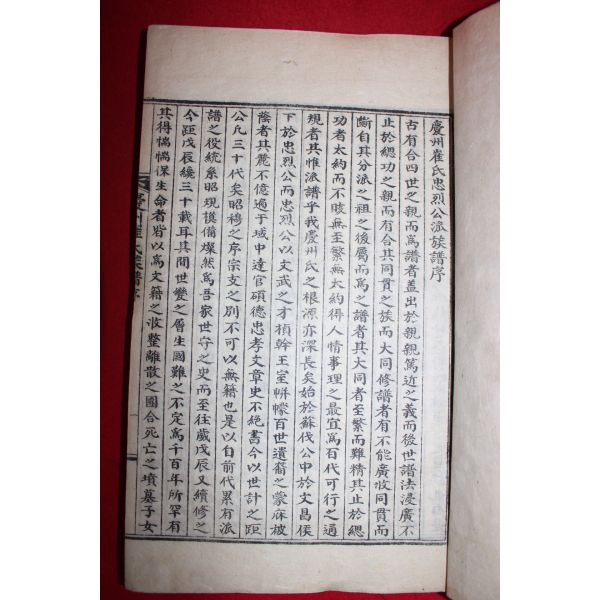 慶州崔氏忠烈公派族譜序
古有合四世之親而爲譜者盖出於親親篤近之義而後世譜法浸廣不
止於緦功之親而有合其同貫之族而大同修譜者有不能廣收同貫而
斷自其分派之祖之後屬而爲之譜者其大同者至繁而難精其止於緦
功者太約而不賅無至繁無太約得人情事理之最宜爲百代可行之通
規者其惟派譜乎我慶州氏之根源亦深長矣始於蘇伐公中於文昌侯
下於忠烈公而忠烈公以文武之才楨幹王室帡幪百世遺裔之蒙庥被
蔭者其麗不億遍于域中達官碩德忠孝文章史不絶書今以世計之距
公凡三十代矣昭穆之序宗支之別不可以無籍也是以自前代累有派
譜之役統系昭規謨備燦然爲吾家世守之史而至往歲戊辰又續修之
今距戊辰纔三十載耳其間世變之層生國難之不定爲千百年所罕有
其得惴惴保生命者皆以爲文籍之收整離散之團合死亡之墳墓子女
慶州崔氏族譜序